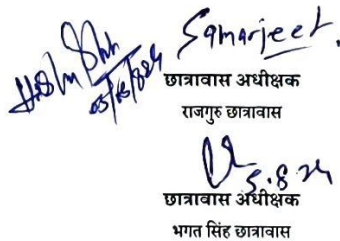 Samarjeet
छात्रावास अधीक्षक
राजगुरु छात्रावास
5.8.24
छात्रावास अधीक्षक
भगत सिंह छात्रावास